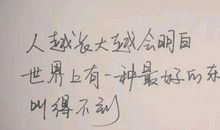 人越长大越会明白
世界上有一种最好的东
叫得不到